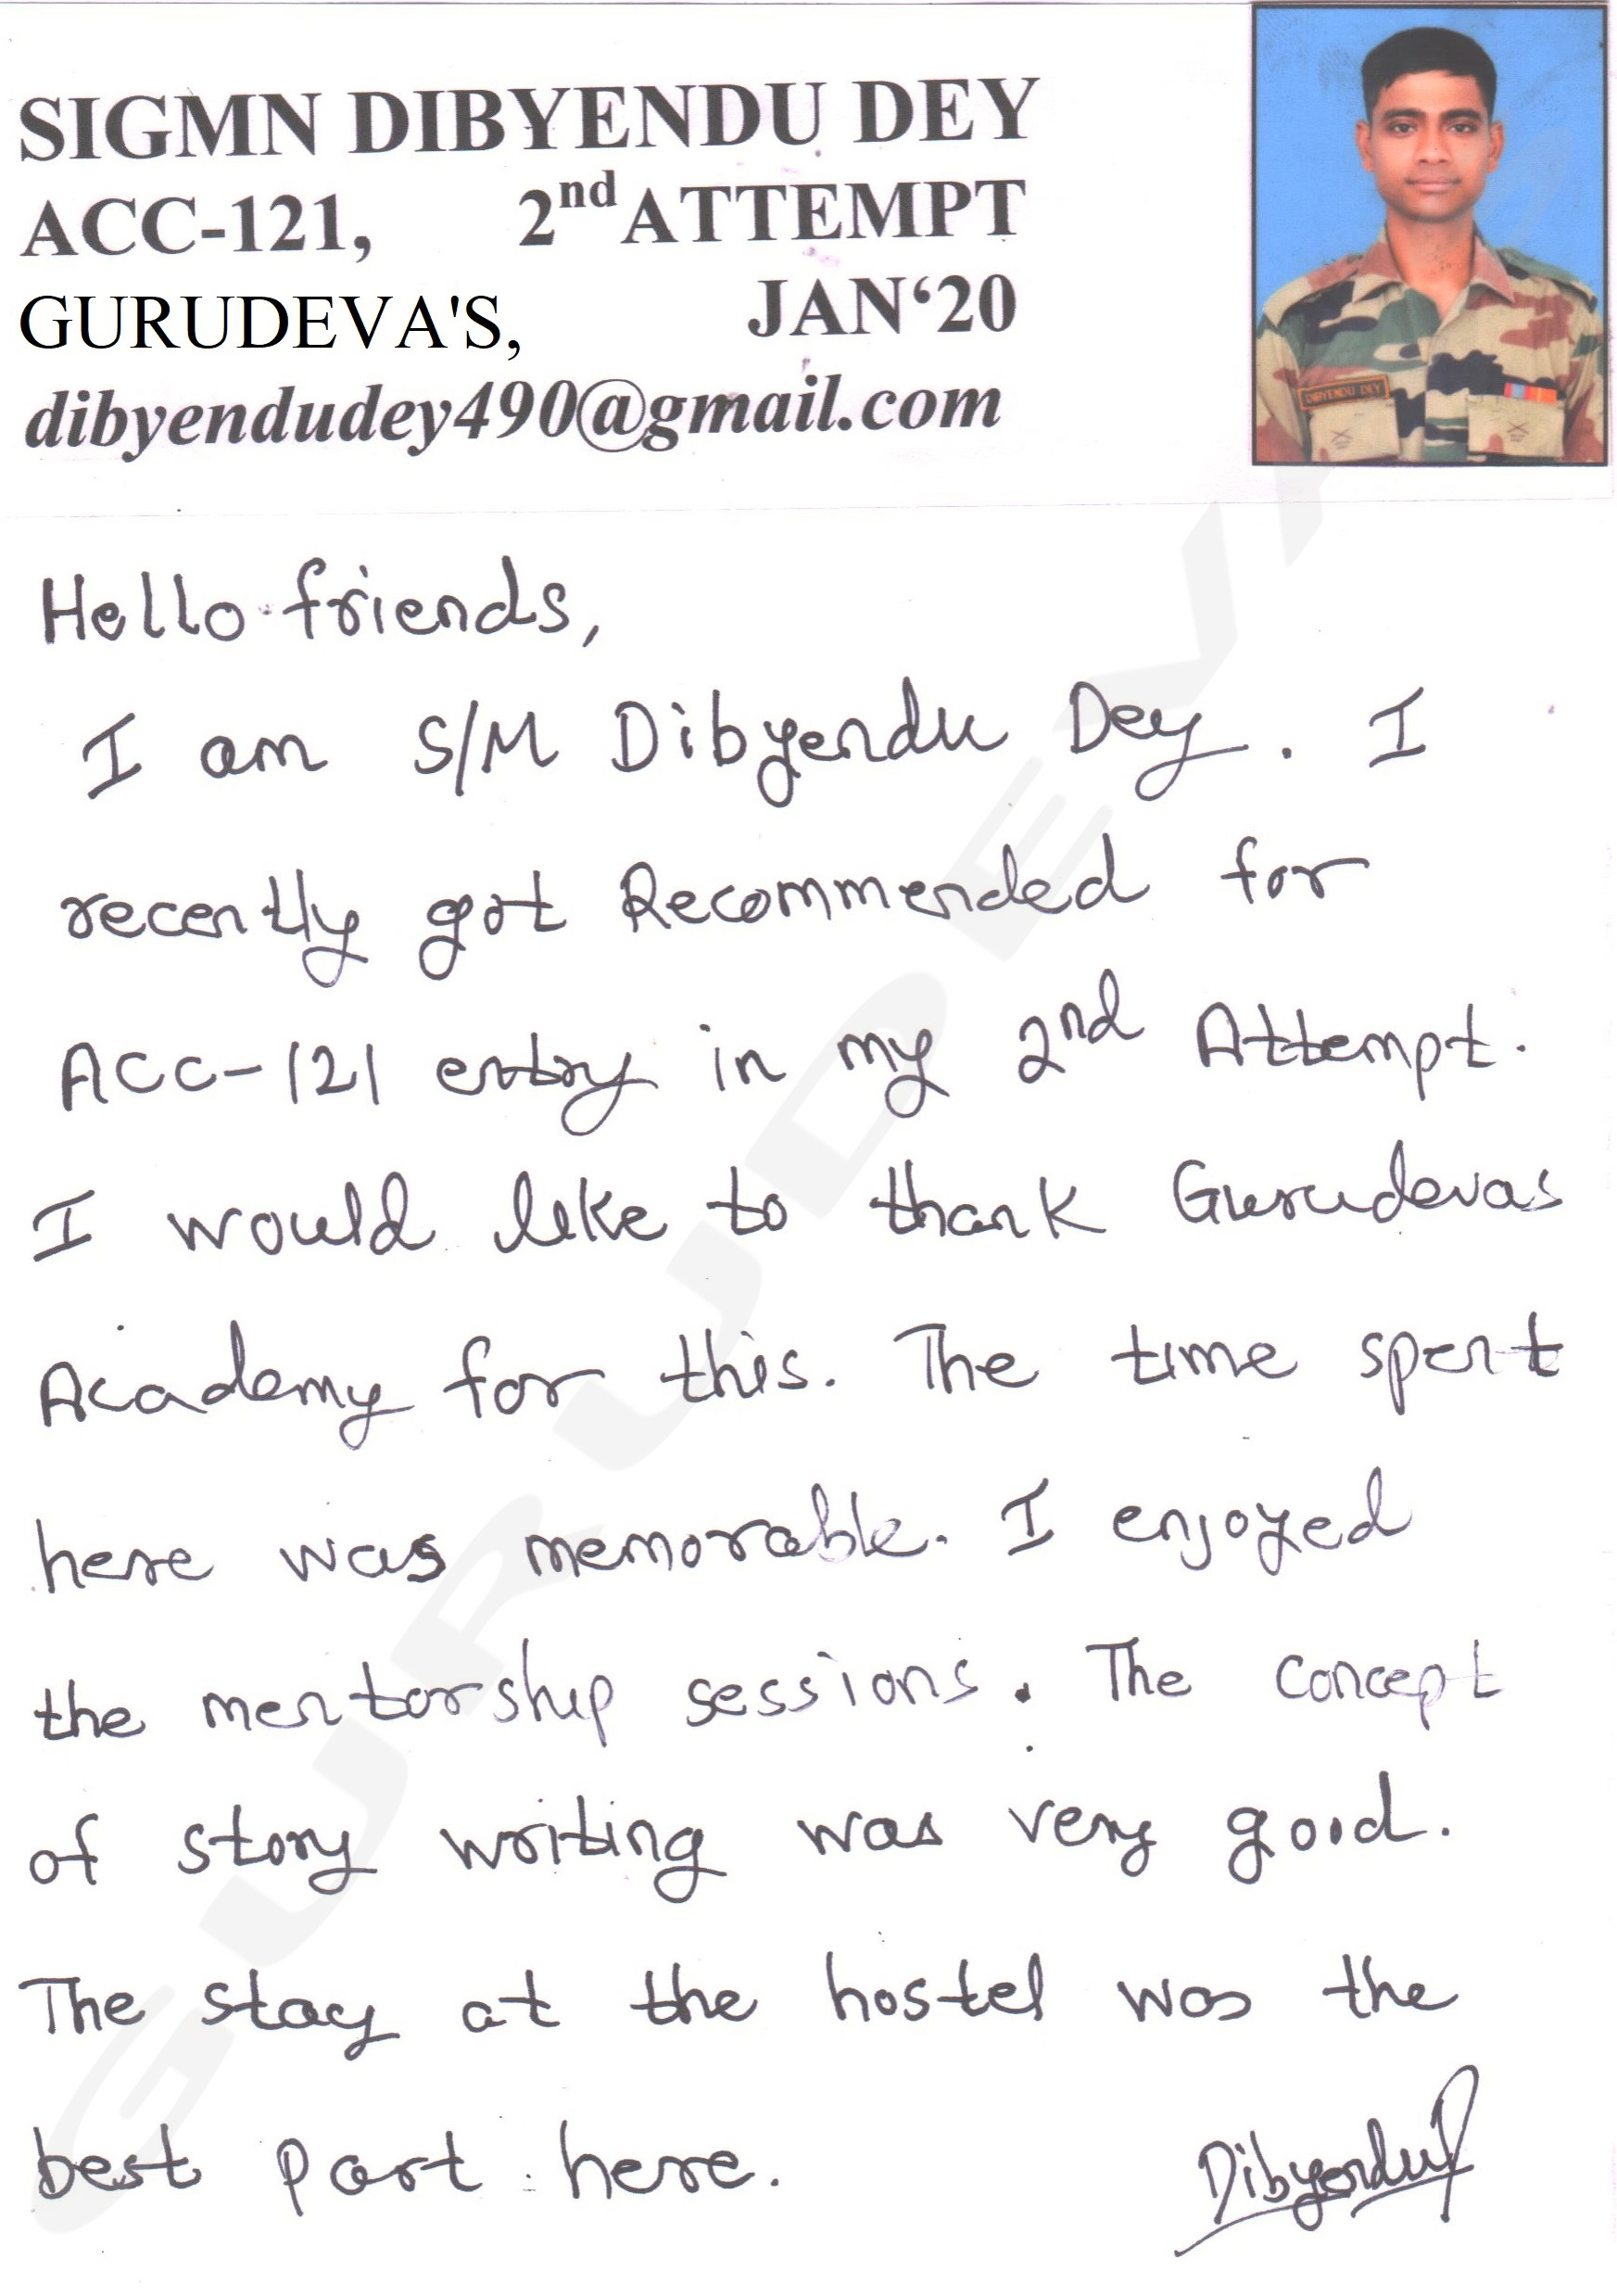 SIGMN DIBYENDU DEY
ACC-121, 2nd ATTEMPT
GURUDEVA'S, JAN‘20
dibyendudey490@gmail.com
DIBYENDU DEY
Hello friends,
I am S/M Dibyendu Dey. I
recently got Recommended for
ACC-121 entry in my 2nd Attempt.
I would like to thank Gurudevas
Academy for this. The time spent
here was memorable. I enjoyed
the mentorship sessions. The concept
of story writing was very good.
The stay at the hostel was the
best part here.
Dibyendu
GURUDEVA